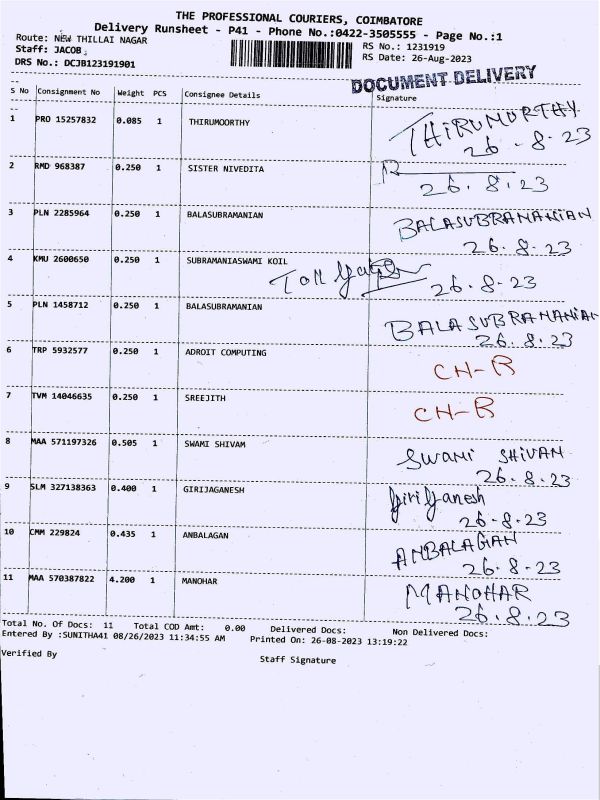 THE PROFESSIONAL COURIERS, COIMBATORE
Delivery Runsheet - P41 - Phone No.:0422-3505555 - Page No.:1
Route: NEW THILLAI NAGAR
RS No.: 1231919
Staff: JACOB
RS Date: 26-Aug-2023
DRS No.: DCJB123191901
DOCUMENT DELIVERY
S No Consignment No Weight PCS Consignee Details Signature
1 PRO 15257832 0.085 1 THIRUMOORTHY THIRUMURTHY
26-8-23
2 RMD 968387 0.250 1 SISTER NIVEDITA
26.8.23
3 PLN 2285964 0.250 1 BALASUBRAMANIAN BALASUBRAMANIAN
26.8.23
4 KMU 2600650 0.250 1 SUBRAMANIASWAMI KOIL
26.8-23
5 PLN 1458712 0.250 1 BALASUBRAMANIAN BALASUBRAMANIAN
26.8.23
6 TRP 5932577 0.250 1 ADROIT COMPUTING CH-R
7 TVM 14046635 0.250 1 SREEJITH CH-R
8 MAA 571197326 0.505 1 SWAMI SHIVAM Swami SHIVAN
26.8.23
9 SLM 327138363 0.400 1 GIRIJAGANESH
26-8-23
10 CMM 229824 0.435 1 ANBALAGAN ANBALAGAN
26.8-23
11 MAA 570387822 4.200 1 MANOHAR MANOHAR
26.8.23
Total No. Of Docs: 11 Total COD Amt: 0.00 Delivered Docs: Non Delivered Docs:
Entered By :SUNITHA41 08/26/2023 11:34:55 AM Printed On: 26-08-2023 13:19:22
Verified By
Staff Signature